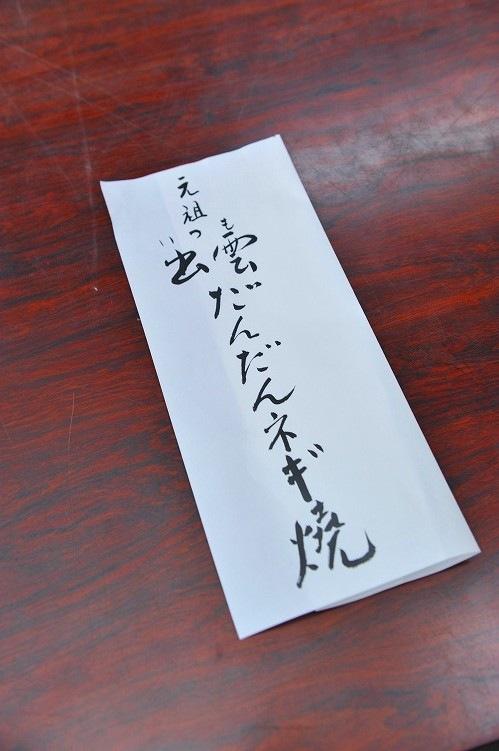 元祖
いつも
出雲だんだんネギ燒